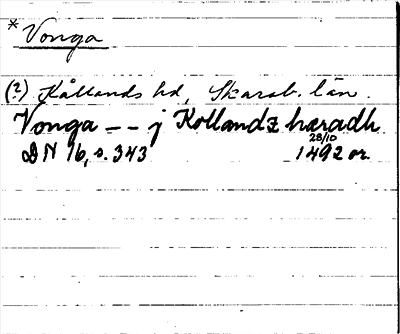 * Vonga
(?) Kållands hd, Skarab. län.
Vonga -- j Kollandz hæradh
28/10
DN 16, s. 343 1492 or.